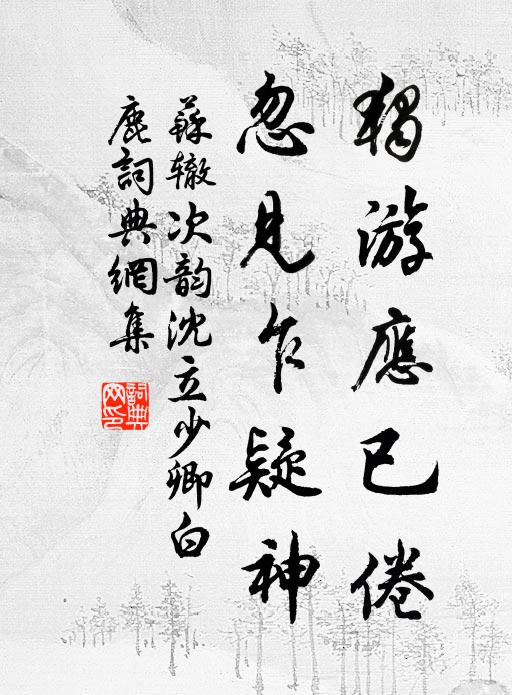 獨游應已倦
忽見乍疑神
蘇辙次韵沈立少卿白
鹿詞典網集
詞典網印